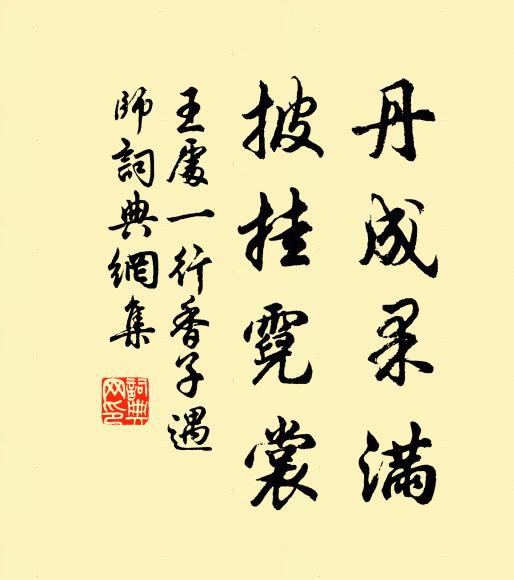 丹成果满
披挂霓裳
王處一行香子遇
師詞典網集
詞典
网印